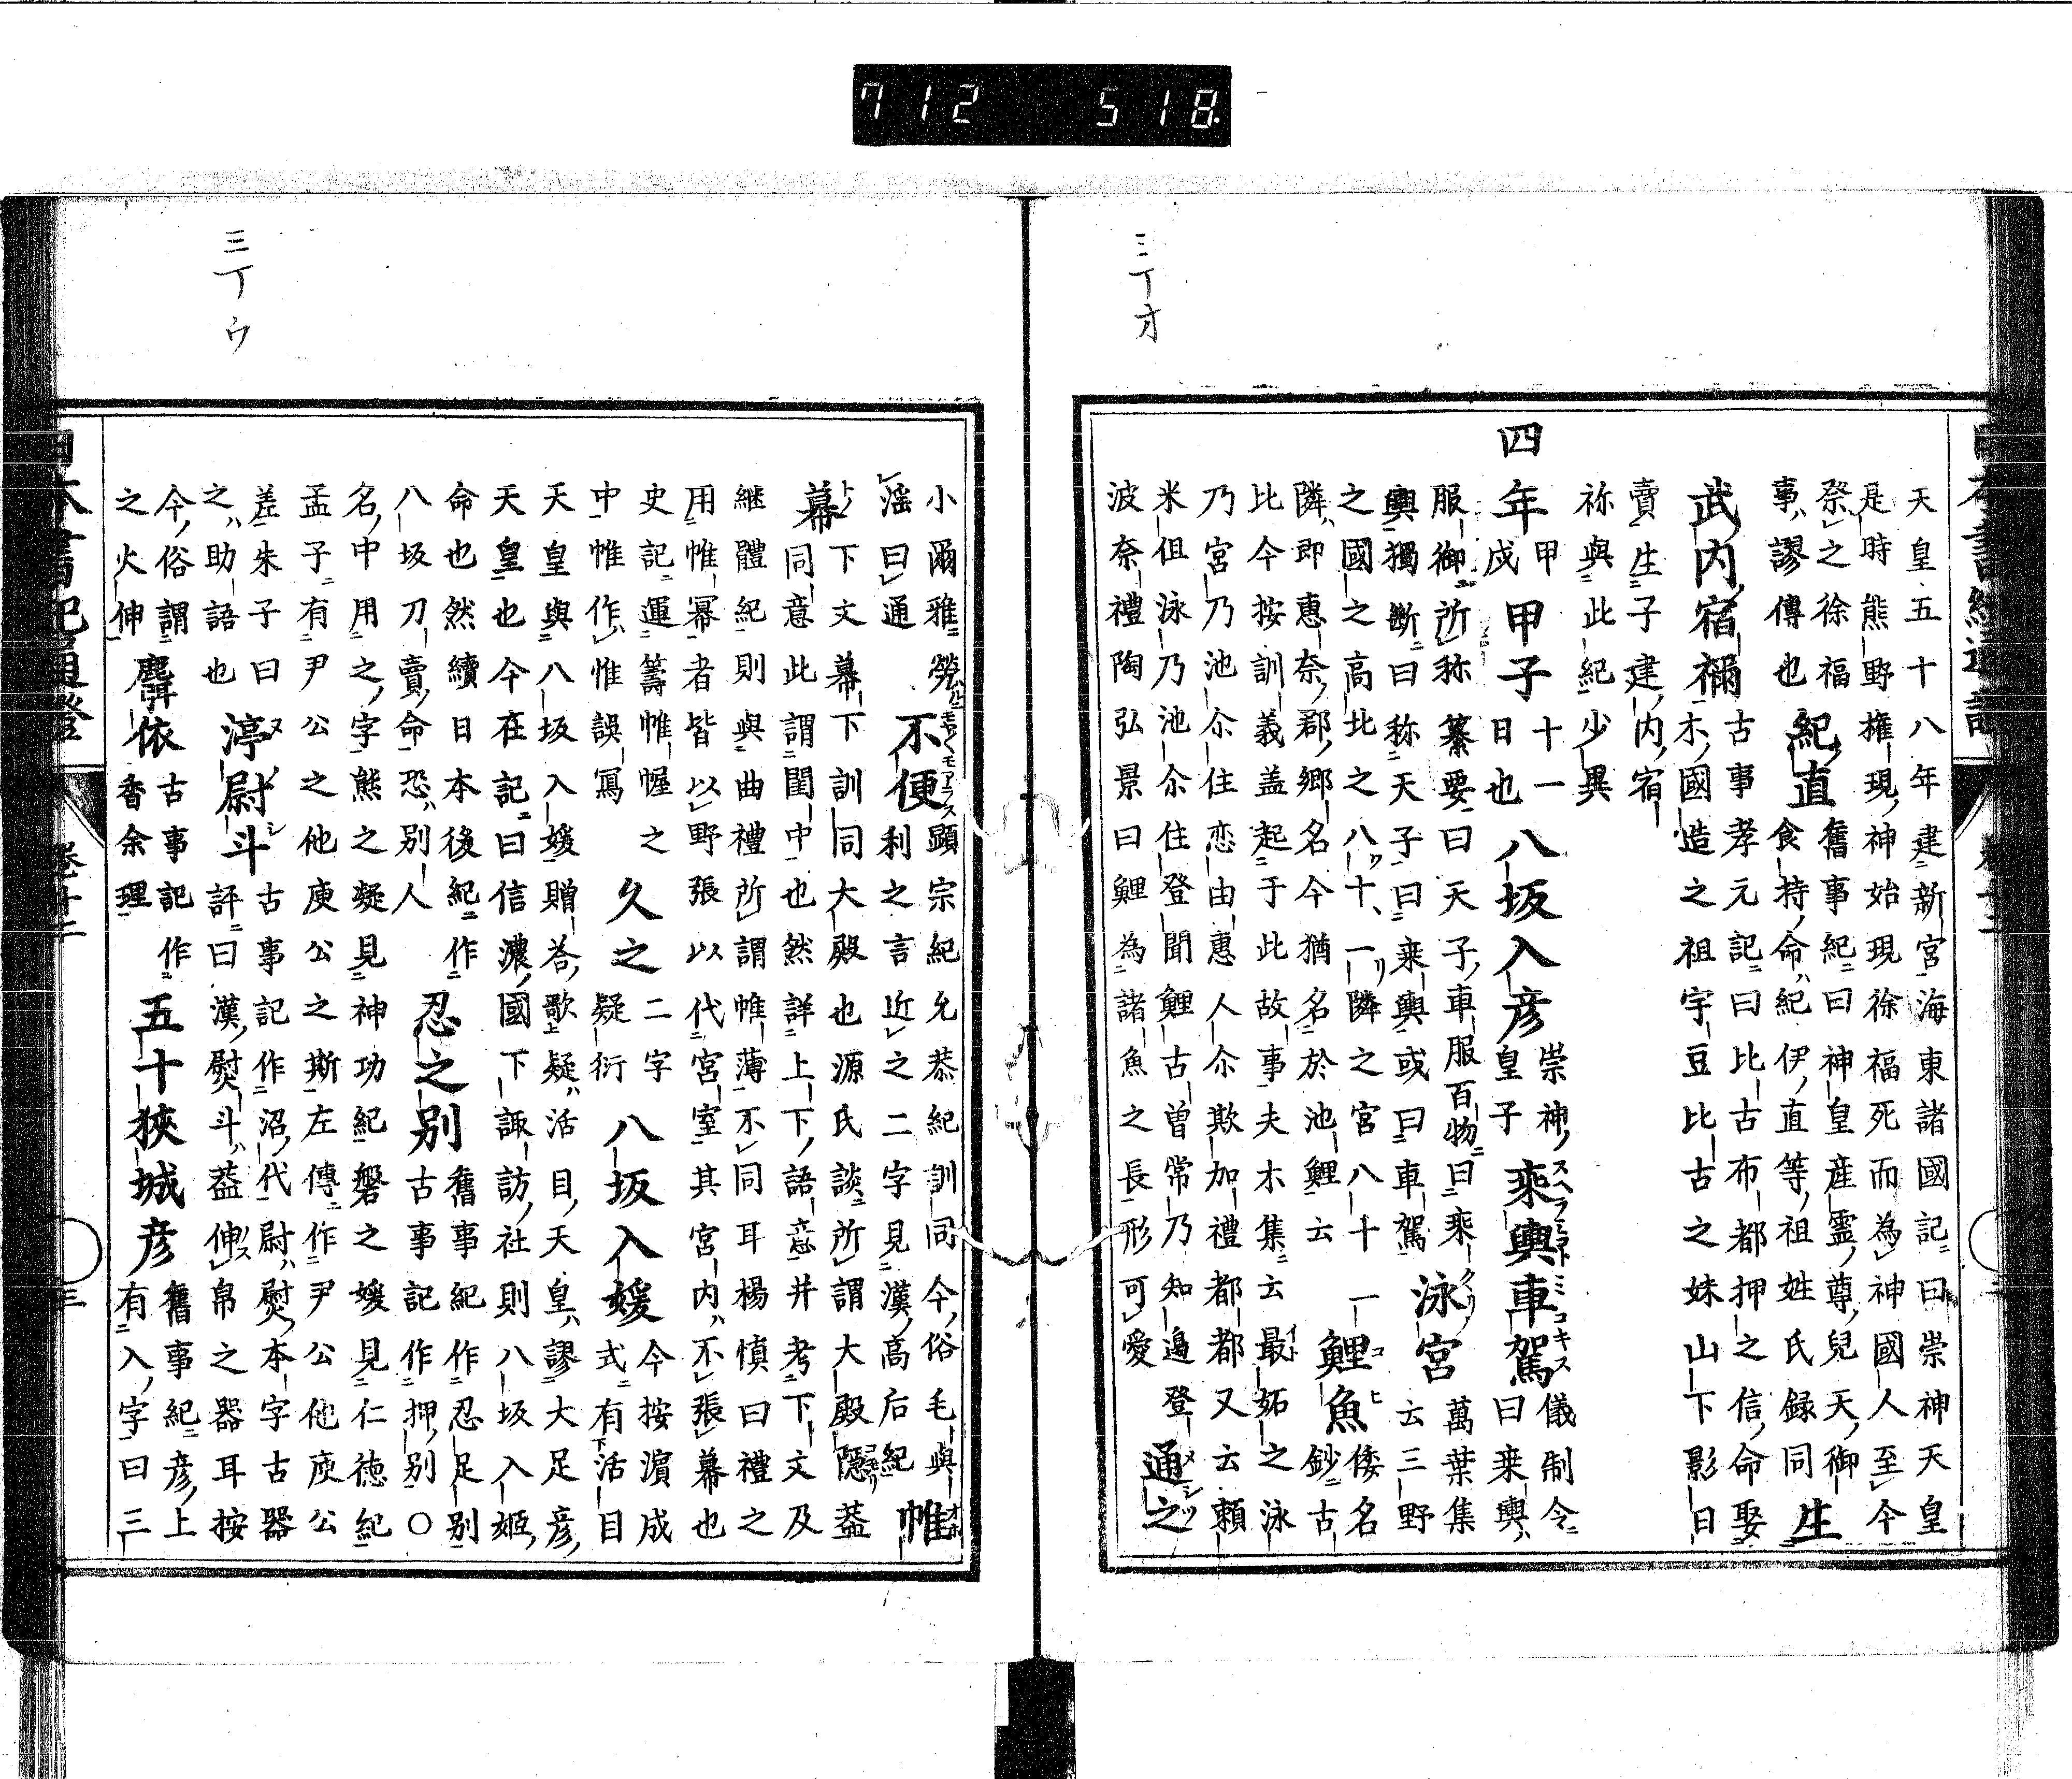 712 518.
三丁オ
天皇五十八年建新宮海東諸國記曰崇神天皇
是時熊野権現神始現徐福死而為神國人至今
祭之徐福 紀直 舊事紀曰神皇産靈尊兒天御
事謬傳也 食持命紀伊直等祖姓氏録同 生
武内宿禰 古事孝元記曰比古布都押之信命娶
木國造之祖宇豆比古之妹山下影日
賣生子建内宿
祢與此紀少異
四年 甲戌 甲子 十一日也 八坂入彦 崇神皇子 乗輿車駕 スヘラミコトミユキス 儀制令
曰乗輿
服御所称 纂要曰天子車服百物曰乗
輿獨断曰称天子曰乗輿或曰車駕 泳宮 クリノ 萬葉集
云三野
之國之高北之八十一隣之宮八十一 鯉魚 コヒ 倭名
鈔古
隣即惠奈郡郷名今猶名於池鯉云
比今按訓義盖起于此故事夫木集云最妬之泳
乃宮乃池尒住恋由惠人尒欺加禮都都又云頼
米伹泳乃池尒住登聞鯉古曽常乃知邉登 通之
波奈禮陶弘景曰鯉為諸魚之長形可愛
三丁ウ
小爾雅㷀 不便 モアラス 顯宗紀允恭紀訓同今俗毛與
滛曰通 利之言近之二字見漢高后紀 帷
幕 下文幕下訓同大殿也源氏談所謂大殿隱蓋
同意此謂閨中也然詳上下語意井考下文及
継體紀則與曲禮所謂帷薄不同耳楊慎曰禮之
用帷幂者皆以野張以代宮室其宮内不張幕也
史記運籌帷幄之 久之 二字 八坂入媛 今按濵成
中帷作惟誤冩 疑衍 式有活目
天皇與八坂入媛贈荅歌疑活目天皇謬大足彦
天皇也今在記曰信濃國下諏訪社則八坂入姫
命也然續日本後紀作 忍之別 舊事紀作忍足別
八坂刀賣命恐別人 古事記作押別〇
名中用之字熊之凝見神功紀磐之媛見仁徳紀
孟子有尹公之他庾公之斯左傳作尹公他庾公
差朱子曰 渟尉斗 ヌノシ 古事記作沼代尉熨本字古器
之助語也 評曰漢熨斗蓋伸帛之器耳按
今俗謂 麛依 古事記作 五十狹城彦 舊事紀彦上
之火伸 香余理 有入字曰三
日本書紀通證
卷十二
三